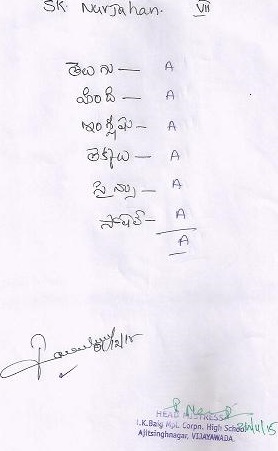 SK. Nurjahan. VII
తెలుగు — A
హింది — A
ఇంగ్లీషు — A
లెక్కలు — A
సైన్సు — A
సోషల్ — A
A
HEAD MISTRESS
I.K.Baig Mpl. Corpn. High School
Ajitsinghnagar, VIJAYAWADA.